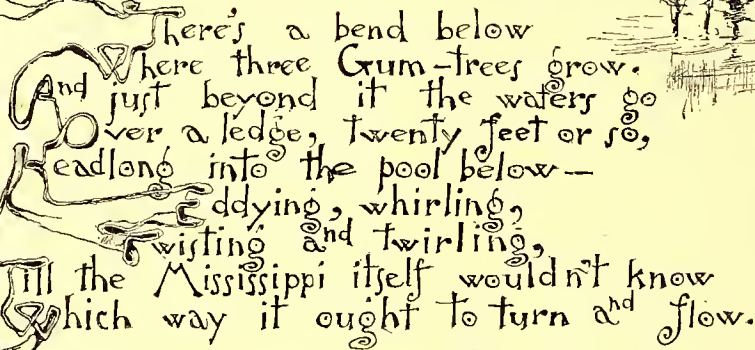 There's a bend below
Where three Gum-trees grow.
And just beyond it the waters go
Over a ledge, twenty feet or so,
Headlong into the pool below—
Eddying, whirling,
Twisting and twirling,
Till the Mississippi itself wouldn't know
Which way it ought to turn and flow.